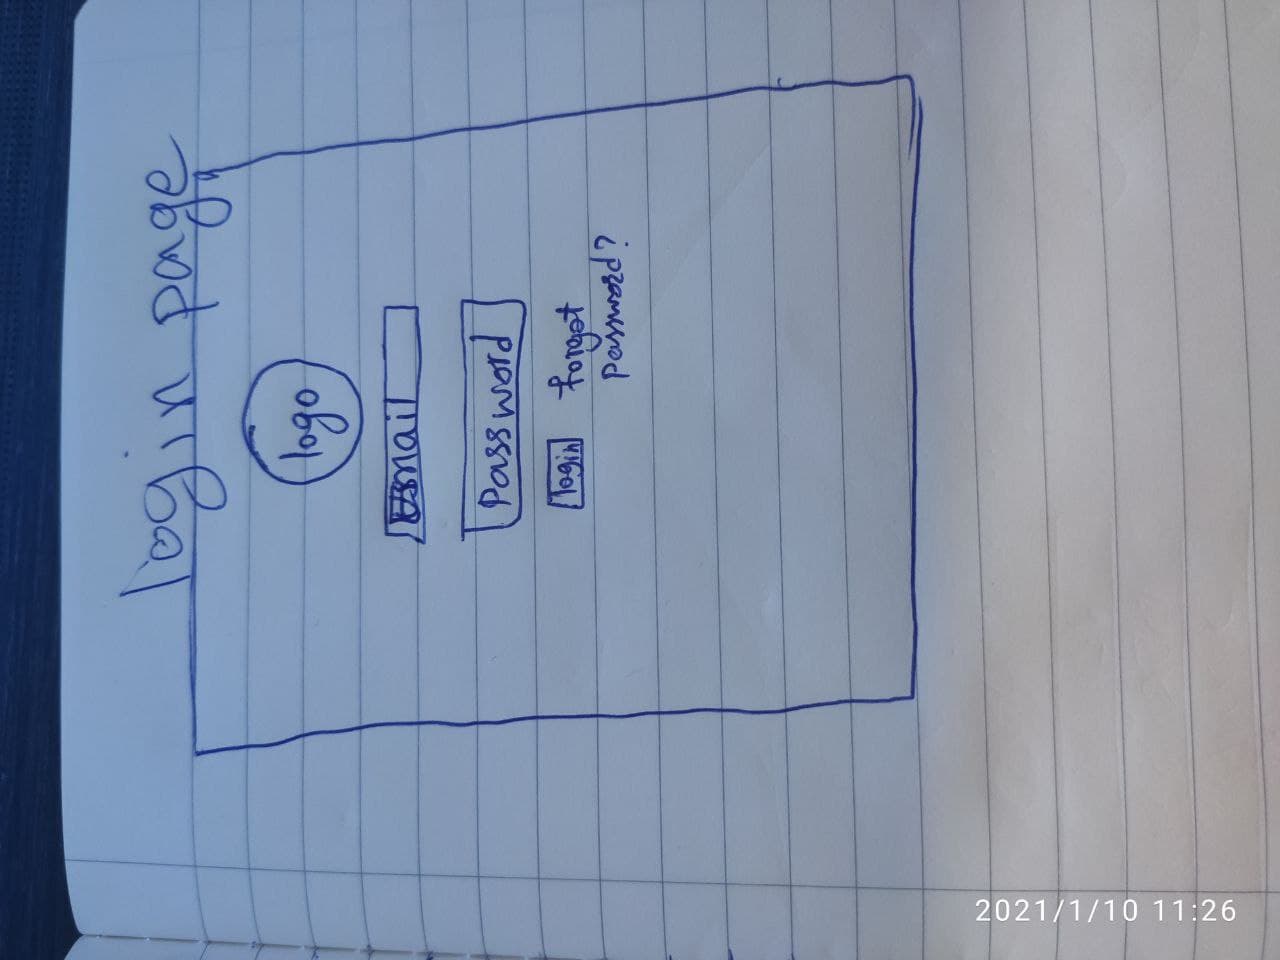 login page
logo
Email
Password
login forgot
password?
2021/1/10 11:26